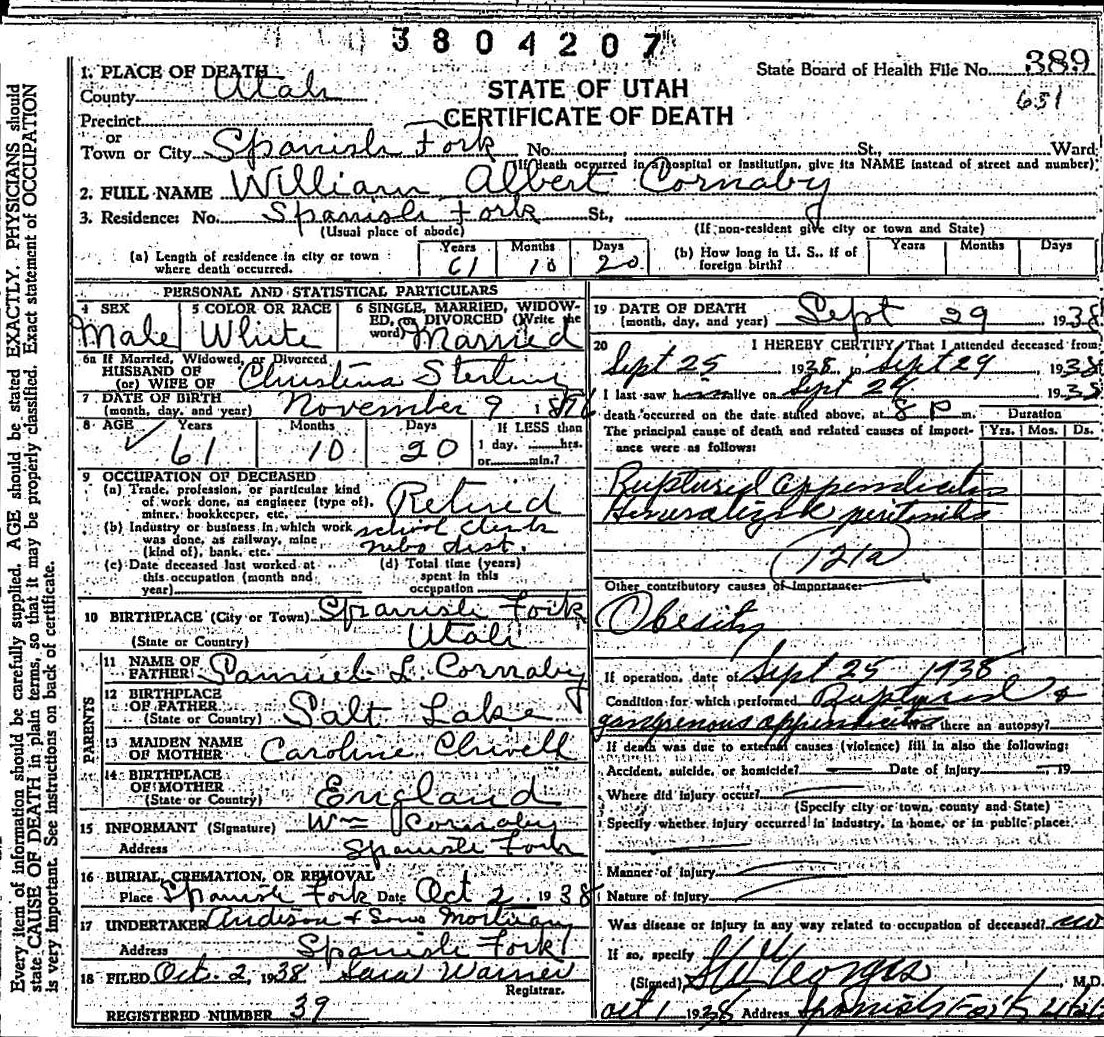 3804207
State Board of Health File No. 389
651
STATE OF UTAH
CERTIFICATE OF DEATH
Every item of information should be carefully supplied. AGE should be stated EXACTLY. PHYSICIANS should
state CAUSE OF DEATH in plain terms, so that it may be properly classified. Exact statement of OCCUPATION
is very important. See instructions on back of certificate.
1. PLACE OF DEATH
County Utah
Precinct
or
Town or City Spanish Fork No. St., Ward
(If death occurred in a hospital or institution, give its NAME instead of street and number)
2. FULL NAME William Albert Cornaby
3. Residence: No. Spanish Fork St.,
(Usual place of abode) (If non-resident give city or town and State)
(a) Length of residence in city or town where death occurred. Years 61 Months 10 Days 20
(b) How long in U. S., if of foreign birth? Years Months Days
PERSONAL AND STATISTICAL PARTICULARS
4 SEX Male
5 COLOR OR RACE White
6 SINGLE, MARRIED, WIDOWED, OR DIVORCED (Write the word) Married
6a If Married, Widowed, or Divorced
HUSBAND OF
(or) WIFE OF Christina Sterling
7 DATE OF BIRTH
(month, day, and year) November 9 1876
8 AGE Years 61 Months 10 Days 20
If LESS than
1 day, hrs.
or min.?
9 OCCUPATION OF DECEASED
(a) Trade, profession, or particular kind
of work done, as engineer (type of),
miner, bookkeeper, etc. Retired
(b) Industry or business in which work
was done, as railway, mine
(kind of), bank, etc. school clerk
nebo dist.
(c) Date deceased last worked at
this occupation (month and
year)
(d) Total time (years)
spent in this
occupation
10 BIRTHPLACE (City or Town) Spanish Fork
(State or Country) Utah
PARENTS
11 NAME OF
FATHER Samuel L. Cornaby
12 BIRTHPLACE
OF FATHER
(State or Country) Salt Lake
13 MAIDEN NAME
OF MOTHER Caroline
14 BIRTHPLACE
OF MOTHER
(State or Country) England
15 INFORMANT (Signature) Wm Cornaby
Address Spanish Fork
16 BURIAL, CREMATION, OR REMOVAL
Place Spanish Fork Date Oct 2 1938
17 UNDERTAKER Anderson & Sons Mortuary
Address Spanish Fork
18 FILED Oct. 2, 1938 Sara Warner
Registrar.
REGISTERED NUMBER 39
19 DATE OF DEATH
(month, day, and year) Sept 29 1938
20 I HEREBY CERTIFY, That I attended deceased from
Sept 25 1938 to Sept 29 1938
I last saw him alive on Sept 29 1938
death occurred on the date stated above, at 8 P m.
Duration
The principal cause of death and related causes of importance were as follows: Yrs. Mos. Ds.
Ruptured appendicitis
Generalized peritonitis
121a
Other contributory causes of importance:
Obesity
If operation, date of Sept 25 1938
Condition for which performed Ruptured &
gangrenous appendicitis Was there an autopsy?
If death was due to external causes (violence) fill in also the following:
Accident, suicide, or homicide? Date of injury 19
Where did injury occur?
(Specify city or town, county and State)
Specify whether injury occurred in industry, in home, or in public place:
Manner of injury
Nature of injury
Was disease or injury in any way related to occupation of deceased? no
If so, specify
(Signed) M.D.
Oct 1 1938 Address Spanish Fork Utah